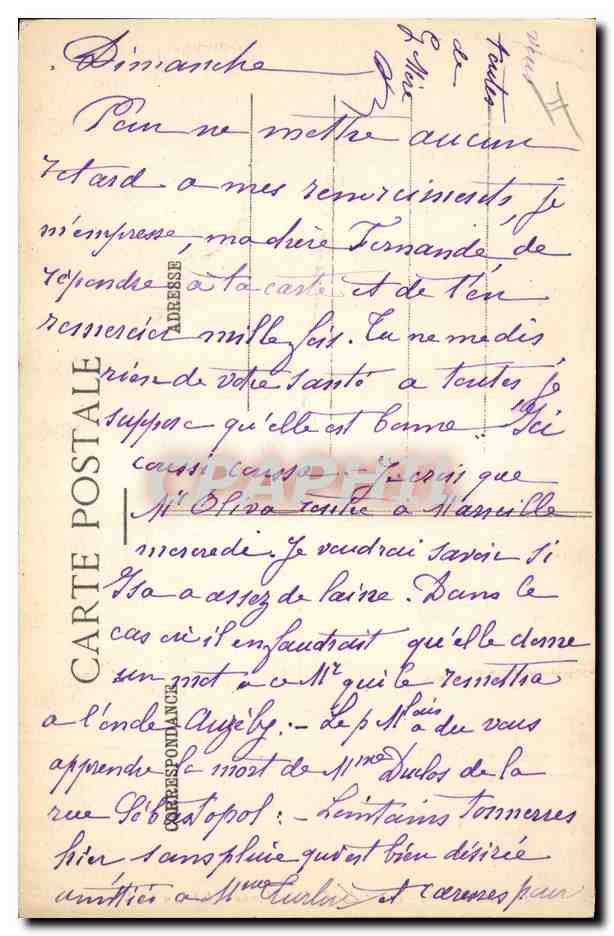 Dimanche
Pour ne mettre aucun
retard a mes remerciments, je
m'empresse, ma chère Fernande, de
répondre à ta carte et de t'en
remercier mille fois. Tu ne me dis
rien de votre santé a toutes je
suppose qu'elle est bonne. Ici
coussi coussa — Je crois que
Mr Oliva rentre a Marseille
mercredi. Je voudrai savoir si
Isa a assez de laine. Dans le
cas où il en faudrait qu'elle donne
un mot a ce Mr qui le remettra
a l'oncle Auzéby. — Le p Mlais a du vous
apprendre la mort de Mme Duclos de la
rue Sébastopol : — Lointains tonnerres
hier sans pluie qui est bien désirée
amitiés a Mme et caresses pour
vous
toutes
de
Mère
CARTE POSTALE
ADRESSE
CORRESPONDANCE
CPAPHIL